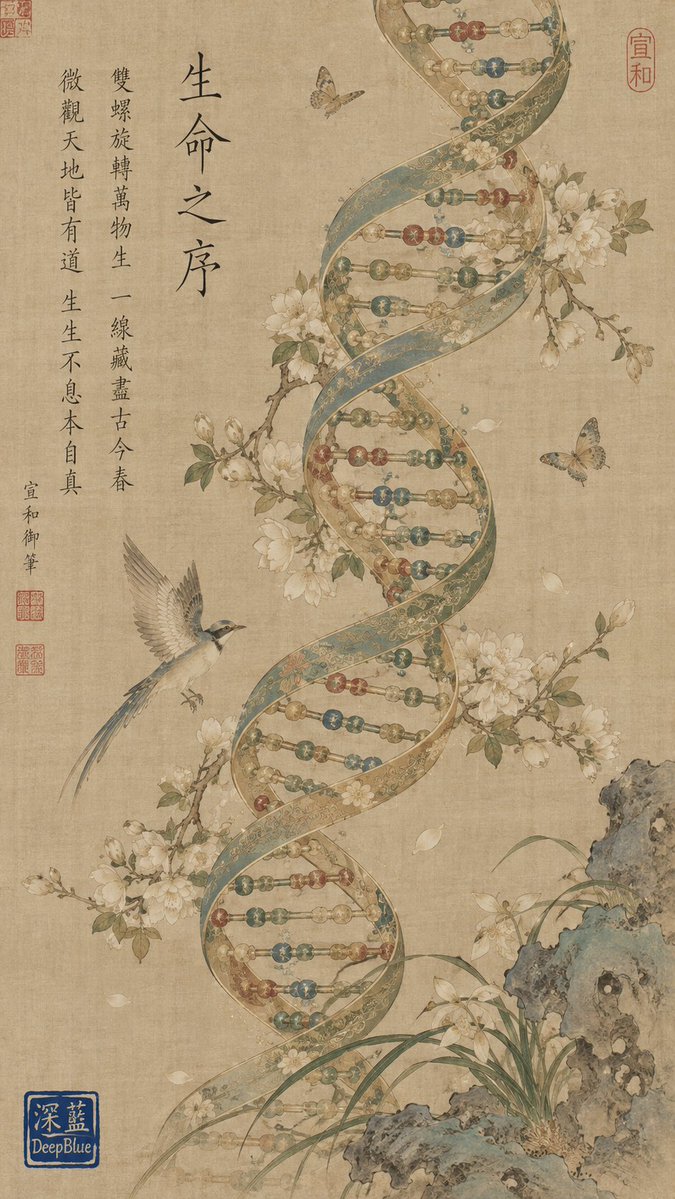 宣和
生命之序
雙螺旋轉萬物生 一線藏盡古今春
微觀天地皆有道 生生不息本自真
宣和御筆
深藍
DeepBlue